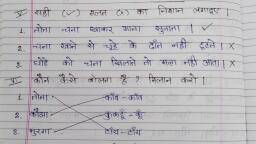 प्र. सही (✓) गलत (x) का निशान लगाइए |
1. तोता चना खाकर गाना सुनाता | ✓
2. चना खाने से चुहे के दाँत नही टूटते | x
3. घोडे को चना खिलाने तो मजा नही आता | x
प्र. कौन कैसे बोलता है ? मिलान करो |
1. तोता काँव - काँव
2. कौआ कुकडू - कूँ
3. मुरगा टाँय - टाँय